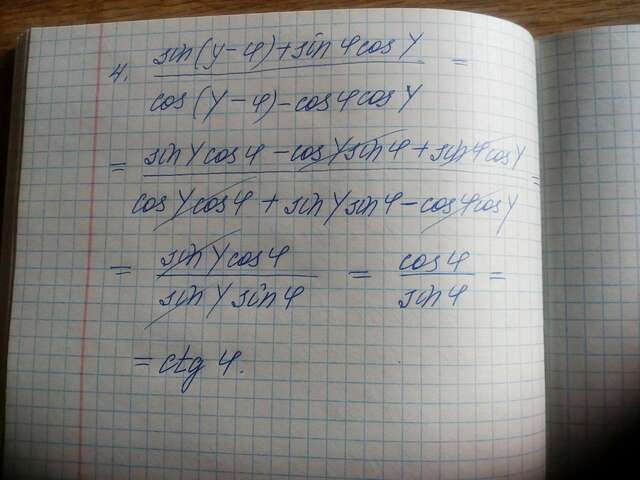 4. sin(γ-φ)+sinφcosγ / cos(γ-φ)-cosφcosγ =
= sinγcosφ-cosγsinφ+sinφcosγ / cosγcosφ+sinγsinφ-cosφcosγ =
= sinγcosφ / sinγsinφ = cosφ / sinφ =
= ctgφ.